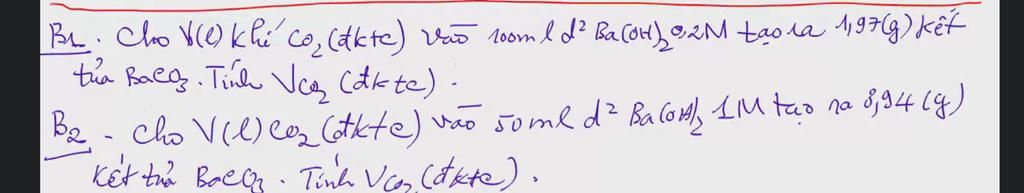 B1. Cho V(l) khí CO2 (đktc) vào 100ml d² Ba(OH)2 0,2M tạo ra 1,97(g) kết
tủa BaCO3. Tính VCO2 (đktc).
B2 - Cho V(l) CO2 (đktc) vào 50ml d² Ba(OH)2 1M tạo ra 3,94 (g)
kết tủa BaCO3. Tính VCO2 (đktc).